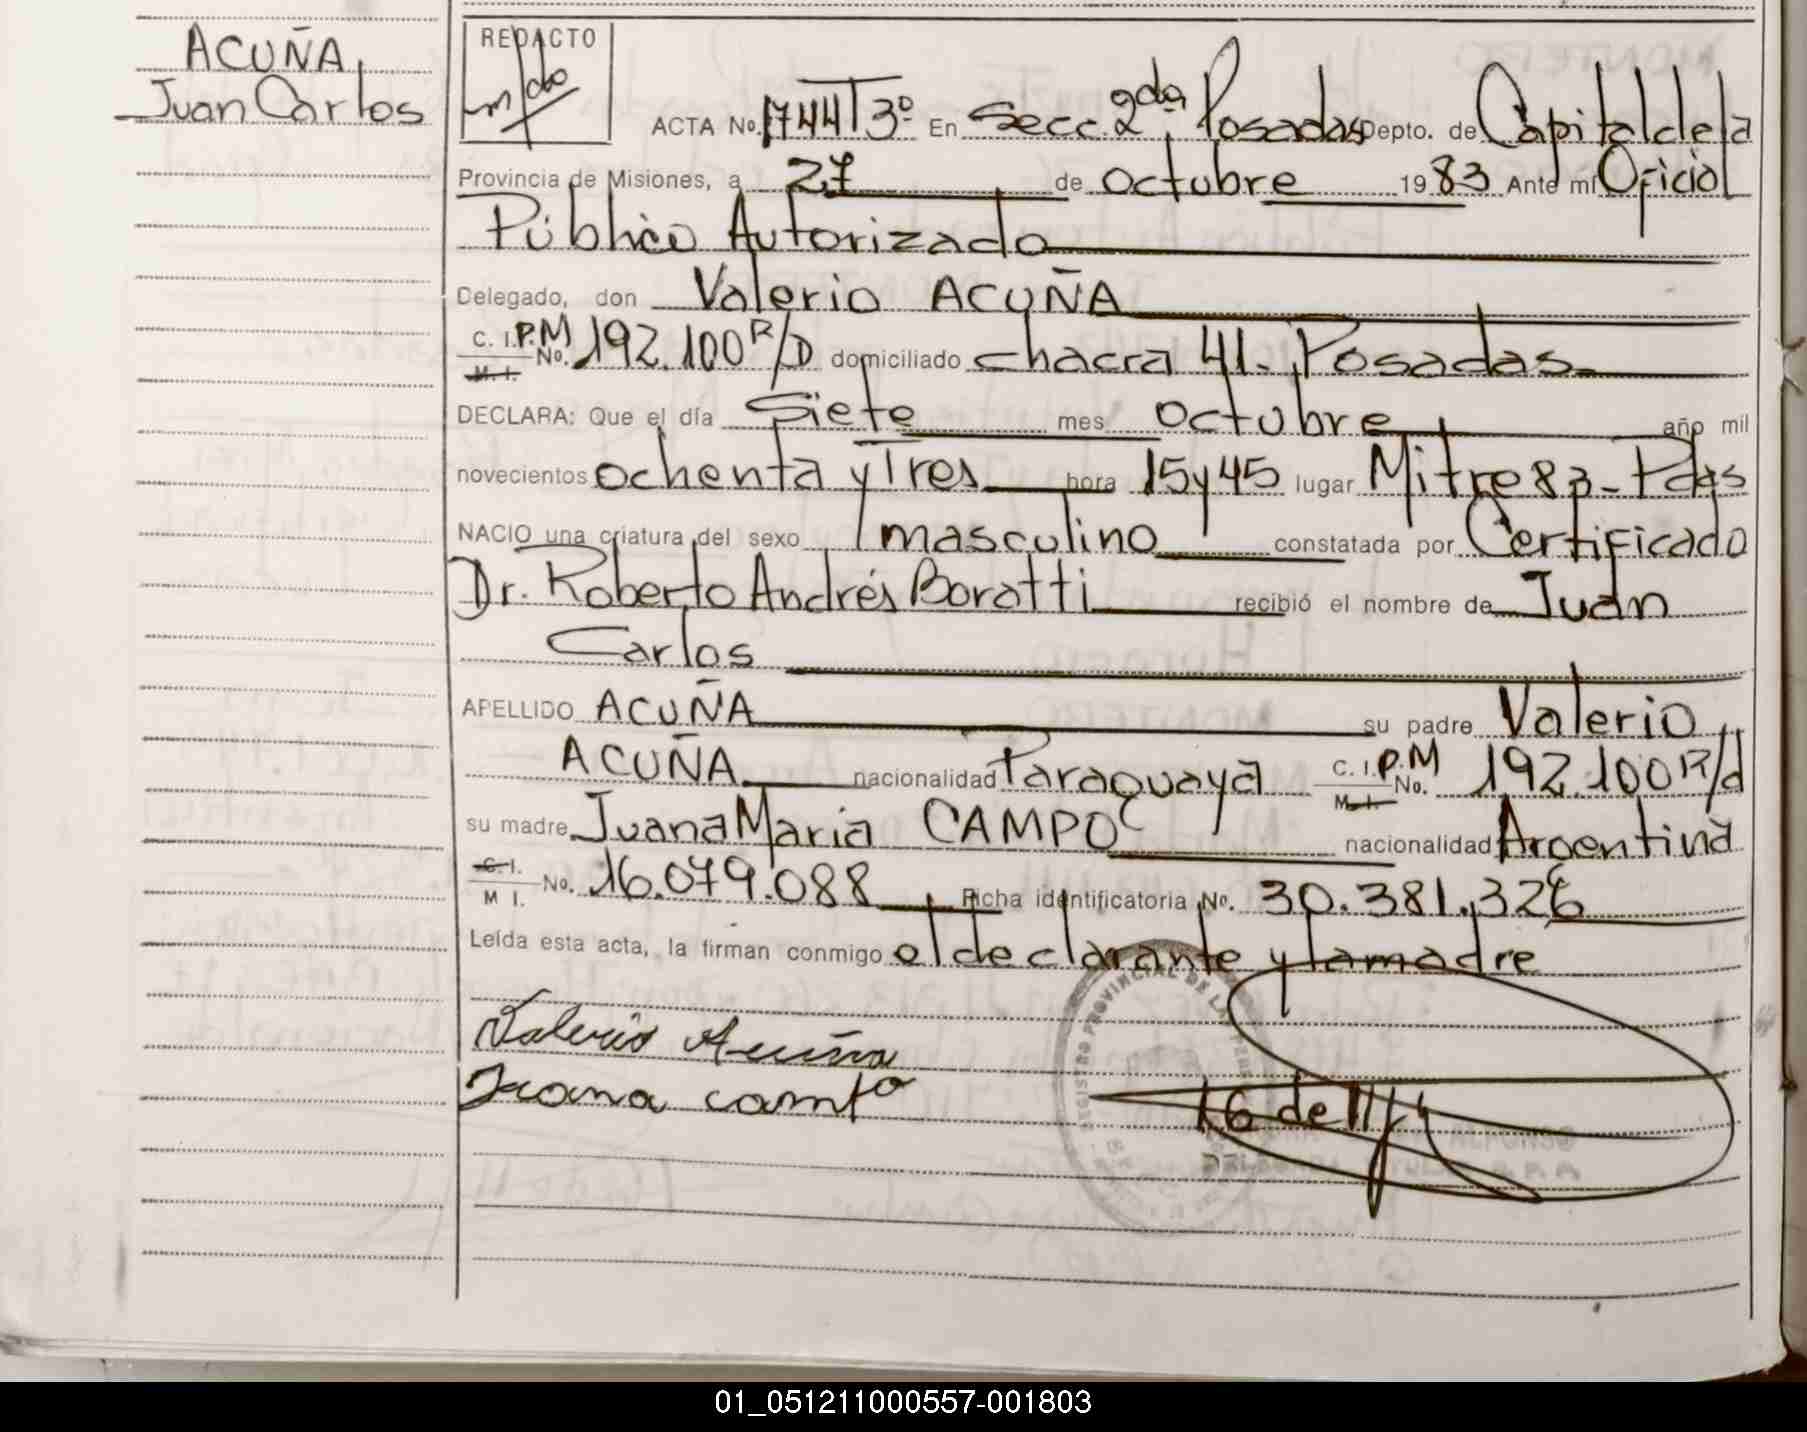 ACUÑA,
Juan Carlos
REDACTO
ACTA No. 1744 T 3º En Secc. 2da. Posadas Depto. de Capital de la
Provincia de Misiones, a 27 de octubre 1983 Ante mí Oficial
Público Autorizado
Delegado, don Valerio ACUÑA
C. I. P.M No. 192.100 R/D domiciliado chacra 41. Posadas
M. I.
DECLARA: Que el día Siete mes octubre año mil
novecientos ochenta y Tres hora 15 y 45 lugar Mitre 83 - Pdas
NACIO una criatura del sexo masculino constatada por Certificado
Dr. Roberto Andrés Boratti recibió el nombre de Juan
Carlos
APELLIDO ACUÑA su padre Valerio
ACUÑA nacionalidad Paraguaya C. I. P.M No. 192.100 R/d
M. I.
su madre Juana Maria CAMPO nacionalidad Argentina
C. I.
M I. No. 16.079.088 Ficha identificatoria No. 30.381.326
Leída esta acta, la firman conmigo el declarante y la madre
Valerio Acuña
Juana campo
REGISTRO PROVINCIAL DE LAS
16 de 11/
01_051211000557-001803